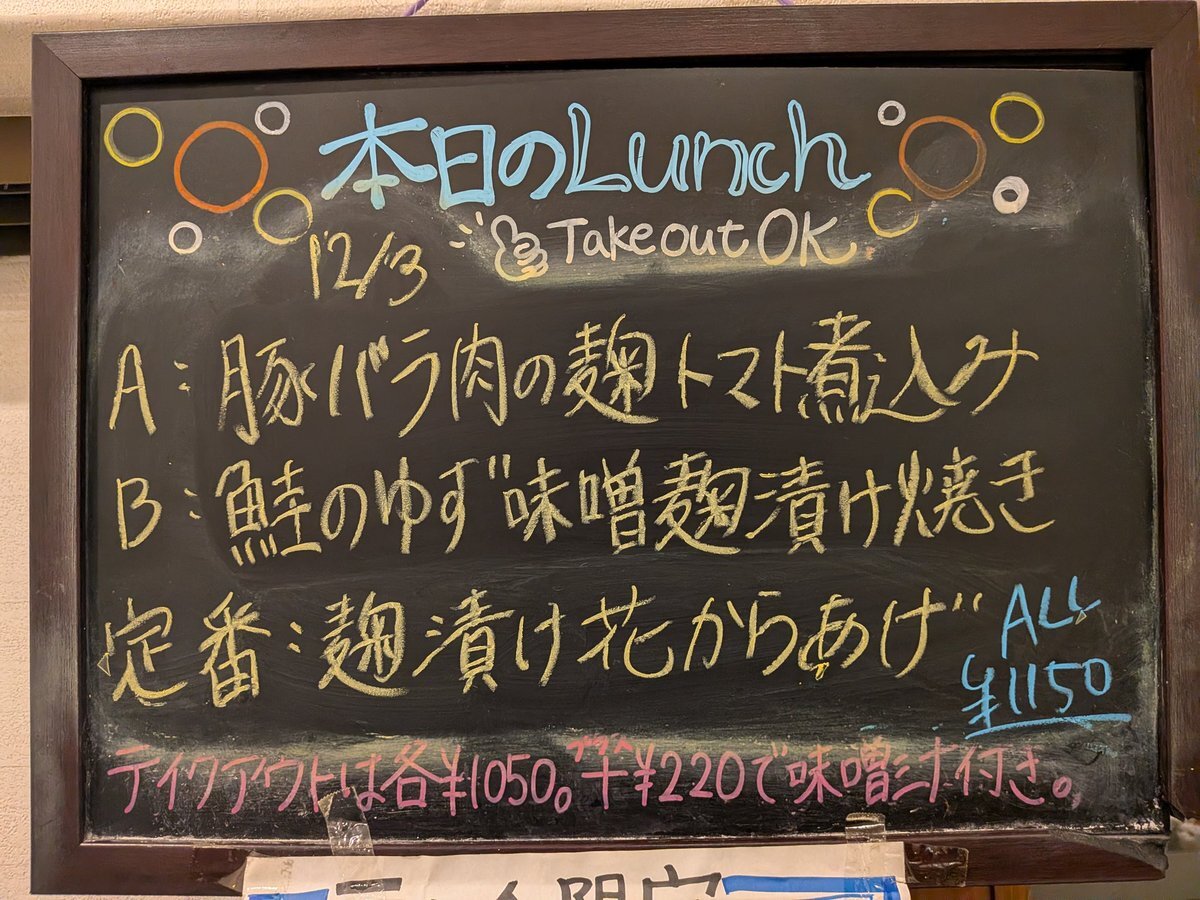 本日のLunch
Takeout OK
12/3
A:豚バラ肉の麹トマト煮込み
B:鮭のゆず味噌麹漬け焼き
定番:麹漬け花からあげ
ALL
¥1150
テイクアウトは各¥1050。プラス+¥220で味噌汁付き。